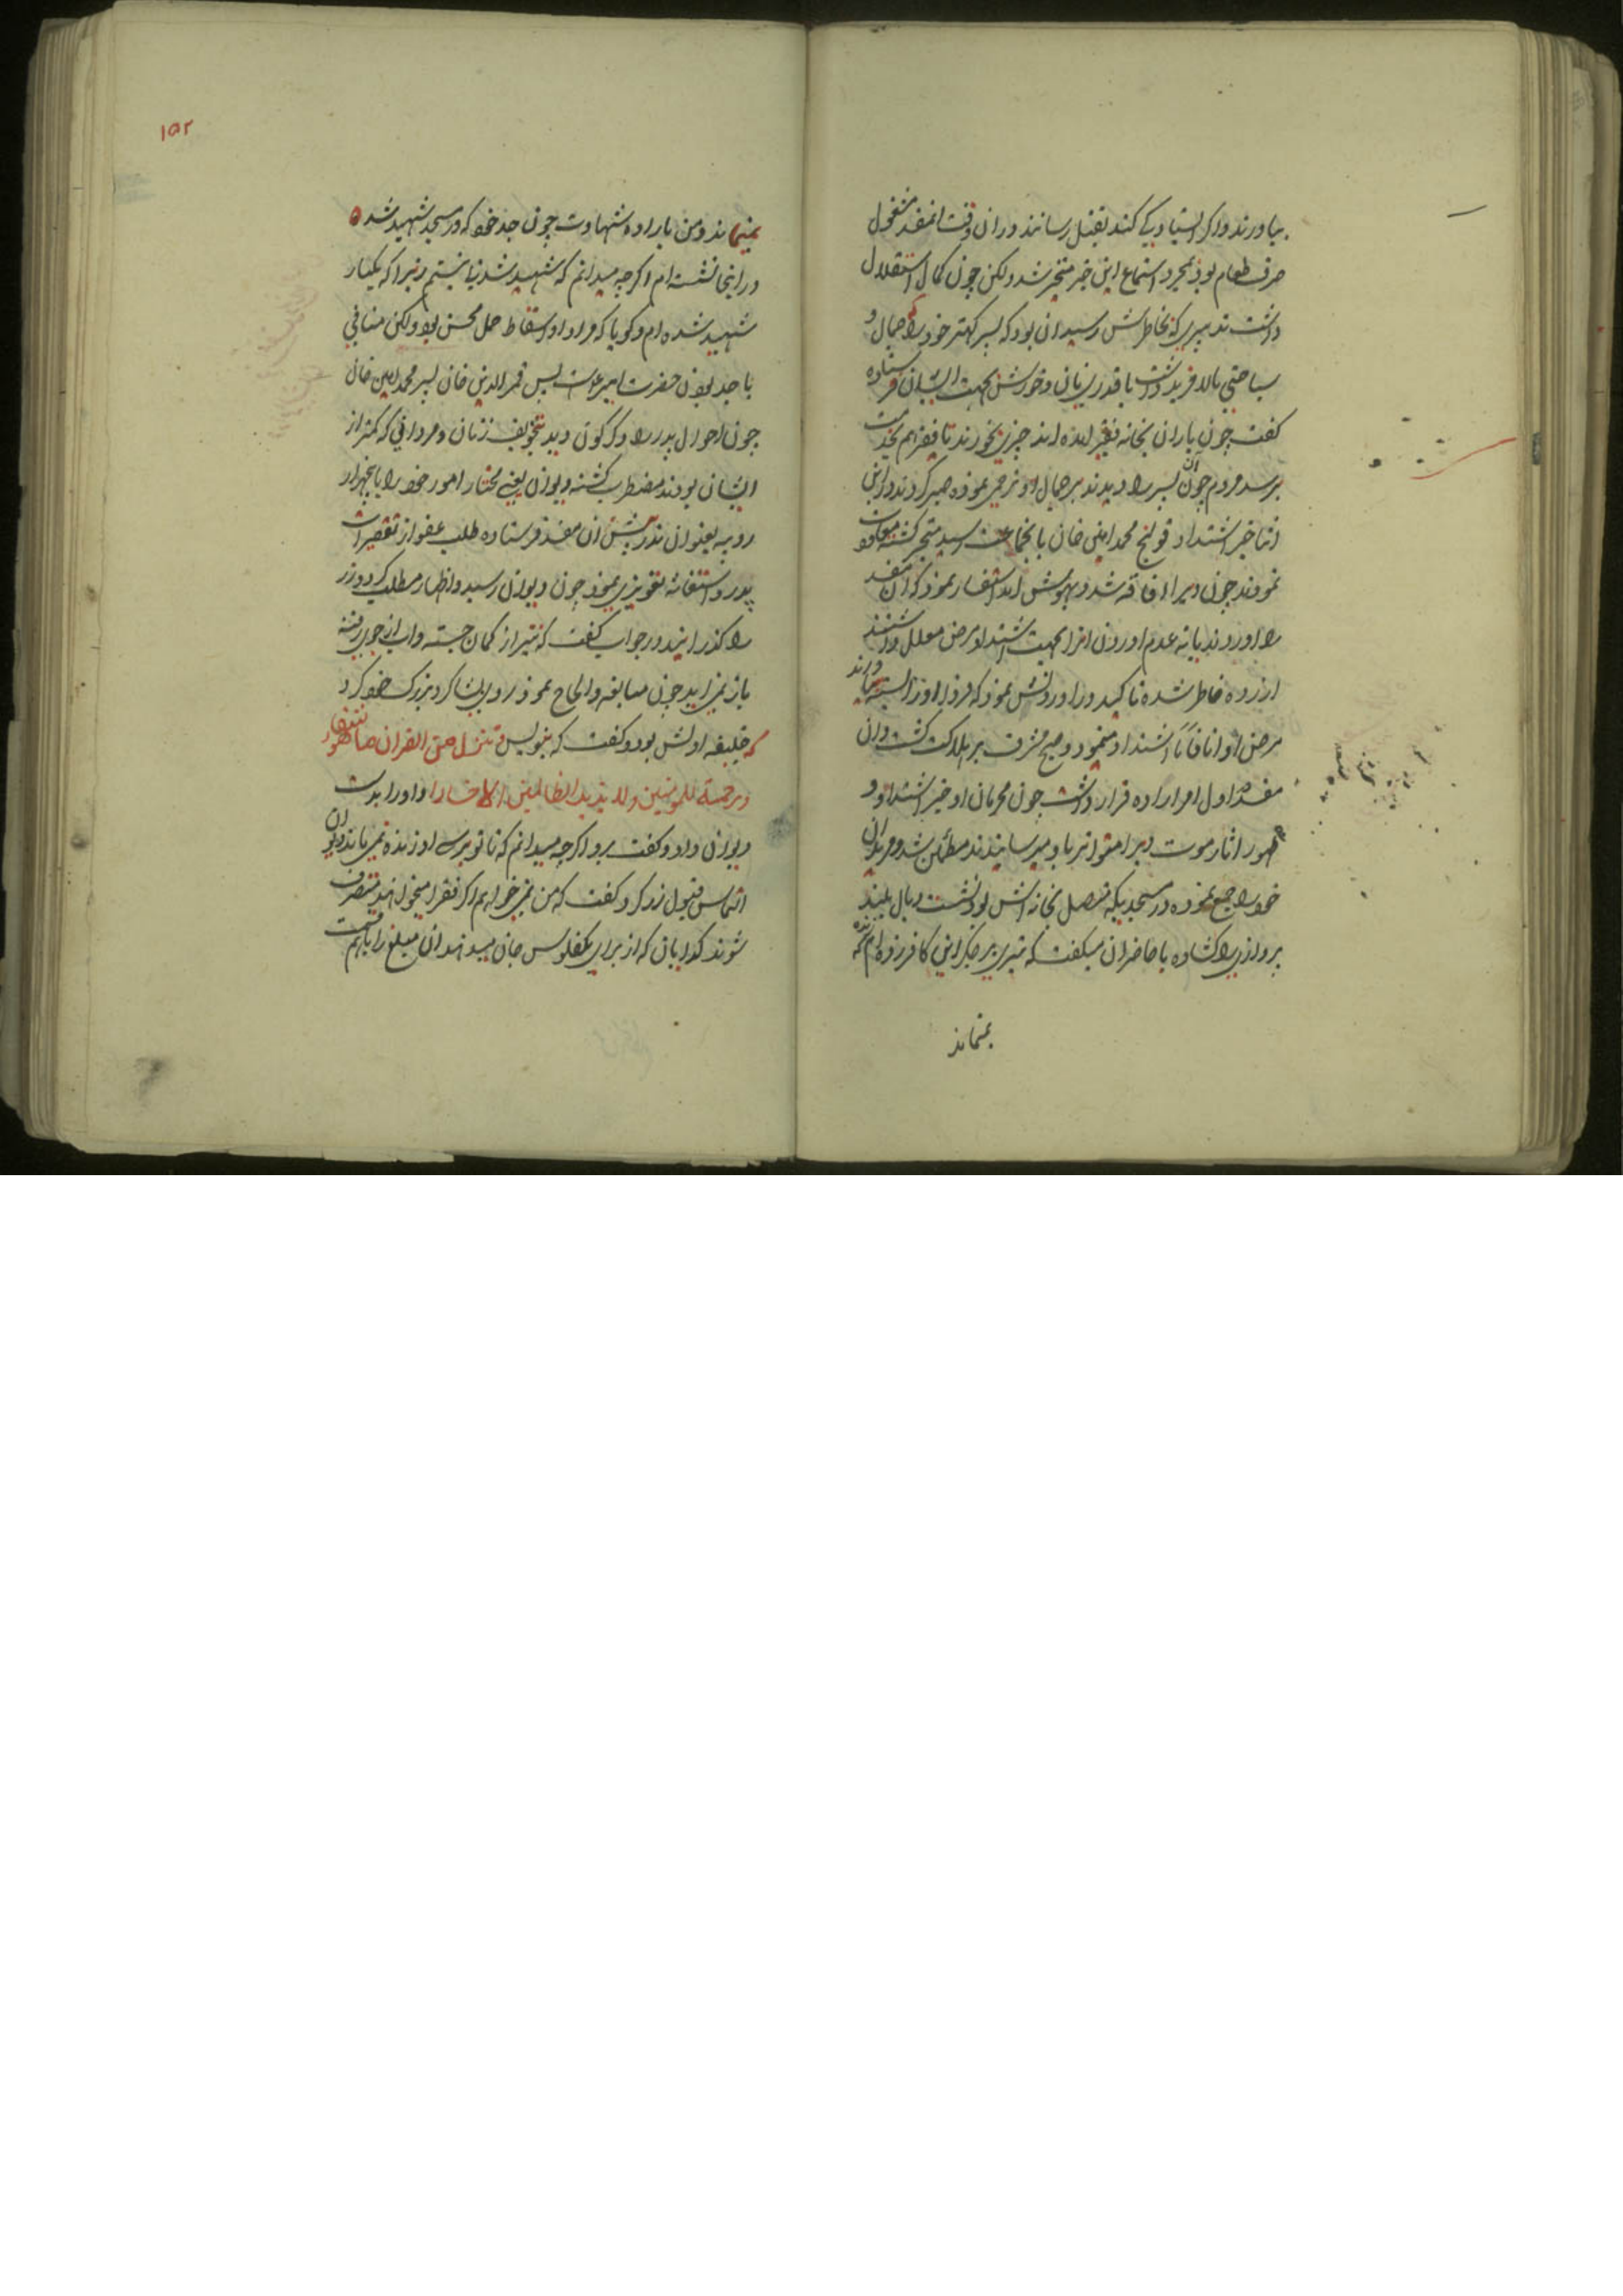 بیاورند و اگر استادگی کند بقتل رسانند در آن وقت آنمفسد مشغول
صرف طعام بود بمجرد استماع این خبر متحیر شد ولکن چون کمال استقلال
داشت تدبیری که بخاطرش رسید آن بود که پسر کهتر خود را که جمال و
صباحتی بالافرید داشت با قدری نان و خورش بجهت ایشان فرستاده
گفت چون یاران بخانه فقیر آمده اند چیزی بخورند تا فقیر هم بخدمت
برسد مردم چون آن پسر را دیدند بر جمال او ترحمی نموده صبر کردند در این
اثنا خبر اشتداد قولنج محمد امین خان بانجماعت رسید متحیر گشته معاودت
نمودند چون ویرا افاقه شد و بهوش آمد استفسار نمود که آن مفسد
را آوردند یا نه عدم آوردن انرا بجهت اشتداد مرض معلل داشتند
آزرده خاطر شده تاکید در آوردنش نمود که فردا او را البته بیارند
مرض او آنا فآنا اشتداد مینمود و صبح مشرف بر هلاکت گشت و آن
مفسد اول امر اراده فرار داشت چون محرمان او خبر اشتداد و
ظهور آثار موت ویرا متواتر باو میرسانیدند مطمئن شد و مریدان
خود را جمع نموده در مسجدیکه متصل بخانه اش بود نشست و بال بلند
پروازی را گشاده با حاضران میگفت که تیری بر جگر این کافر زده ام که زنده
بنماند
۱۵۲
بنماند و من باراده شهادت چون جد خود که در مسجد شهید شد
در اینجا نشسته ام اگر چه میدانم که شهید شدنیا نیستم زیرا که یکبار
شهید شده ام و گویا که مراد او اسقاط حمل محسن بود ولکن منافی
با جد بودن حضرت امیر عوست پس قمرالدین خان پسر محمد امین خان
چون احوال پدر را دگرگون دید بتخویف زنان و مردانی که کمتر از
ایشان بودند مضطرب گشته دیوان یعنی مختار امور خود را با پنجهزار
روپیه بعنوان نذر پیش آن مفسد فرستاده طلب عفو از تقصیرات
پدر و استغاثه تعویذی نمود چون دیوان رسید و اظهار مطلب کرد و زر
را گذرانید در جواب گفت که تیر از کمان جسته و آب از جوی رفته
باز نمی آید چون مبالغه و الحاح نمود رو بشاگرد بزرگ خود کرد
که خلیفه اولش بود و گفت که بنویس و ننزل من القرآن ما هو شفاء
و رحمة للمومنین ولا یزید الظالمین الا خسارا و او را بدست
دیوان داد و گفت برو اگر چه میدانم که تا تو برسی او زنده نمی ماند دیوان
التماس قبول زر کرد گفت که من نمیخواهم اگر فقرا میخواهند متصرف
شوند گدایان که از برای یکفلوس جان میدهند آن مبلغ را باهم قسمت